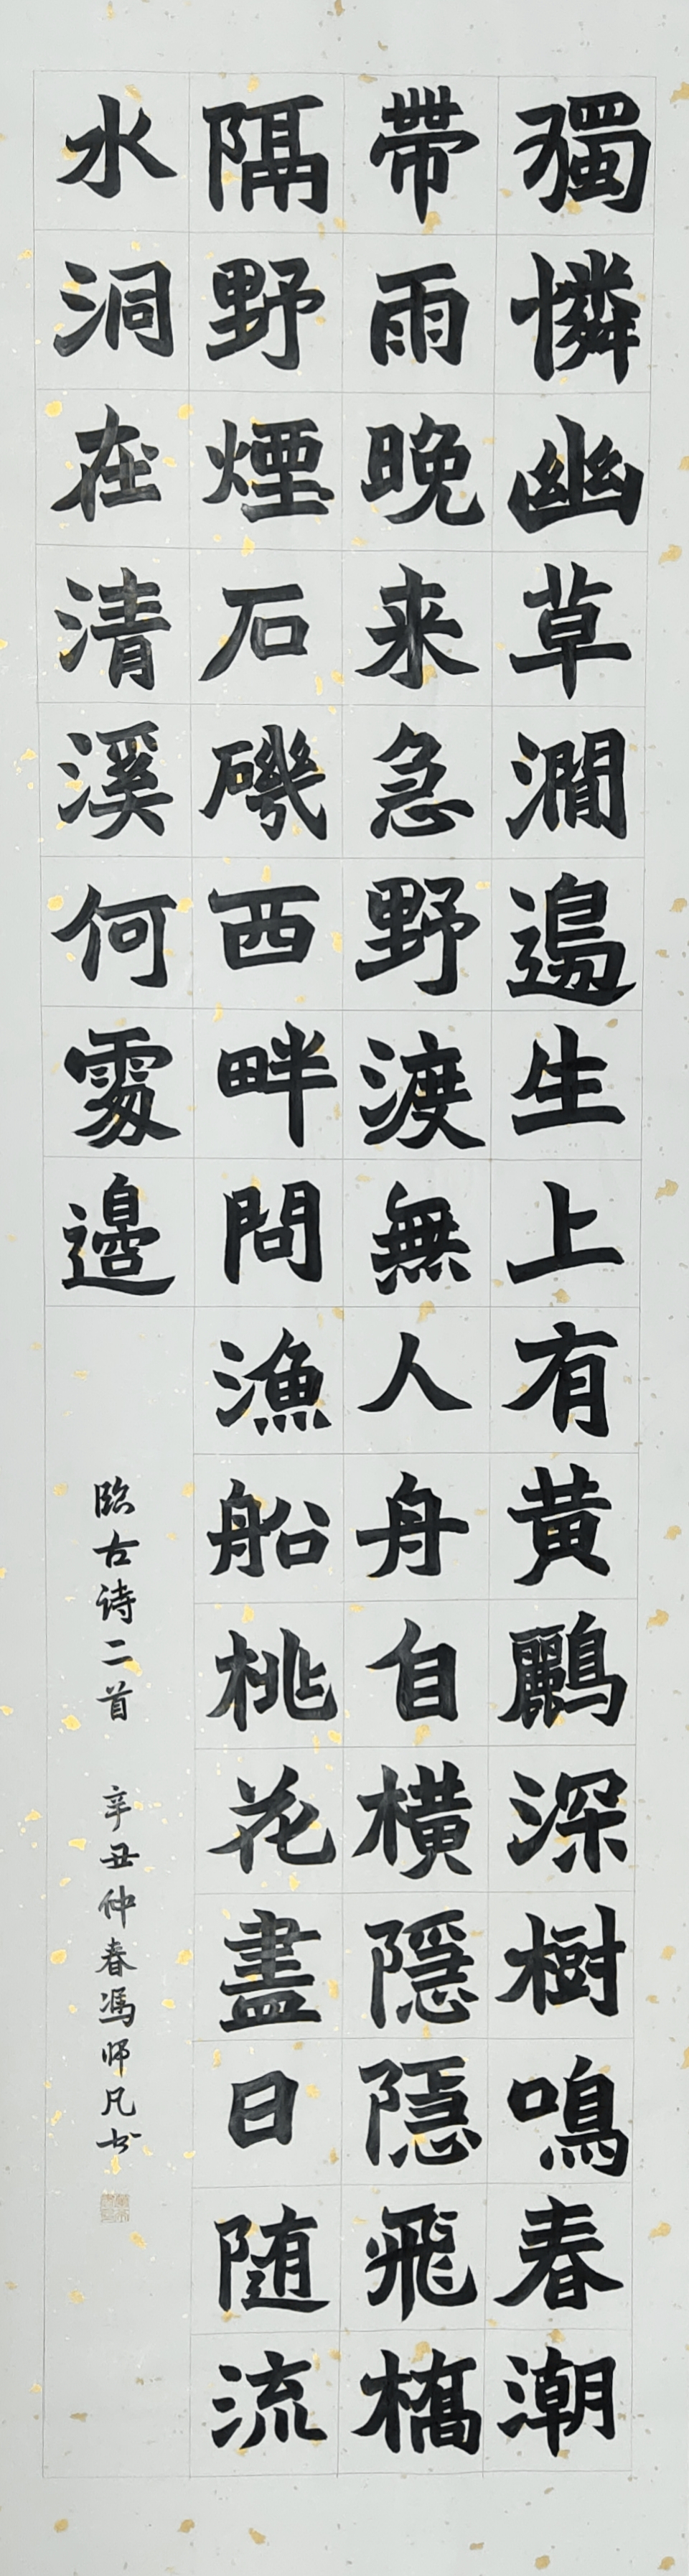 獨憐幽草澗邊生上有黄鸝深樹鳴春潮
帶雨晚来急野渡無人舟自橫隱隱飛橋
隔野煙石磯西畔問漁船桃花盡日随流
水洞在清溪何處邊
臨古诗二首 辛丑仲春馮师凡书